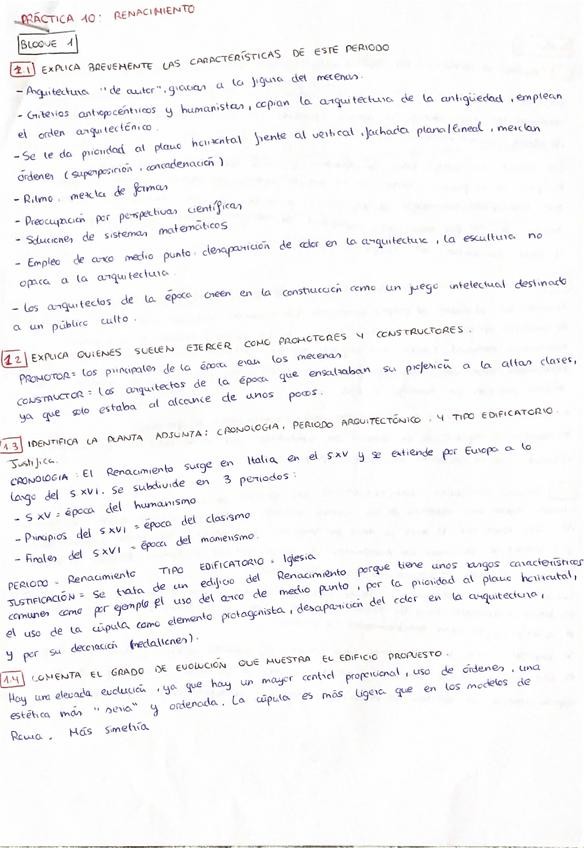 PRÁCTICA 10: RENACIMIENTO
BLOQUE 1
1.1 EXPLICA BREVEMENTE LAS CARACTERÍSTICAS DE ESTE PERIODO
- Arquitectura "de autor", gracias a la figura del mecenas.
- Criterios antropocéntricos y humanistas, copian la arquitectura de la antigüedad, emplean
el orden arquitectónico.
- Se le da prioridad al plano horizontal frente al vertical, fachada plana/lineal, mezclan
órdenes (superposición, concadenación)
- Ritmo, mezcla de formas
- Preocupación por perspectivas científicas
- Soluciones de sistemas matemáticos
- Empleo de arco medio punto, desaparición de color en la arquitectura, la escultura no
opaca a la arquitectura.
- Los arquitectos de la época creen en la construcción como un juego intelectual destinado
a un público culto.
1.2 EXPLICA QUIENES SUELEN EJERCER COMO PROMOTORES Y CONSTRUCTORES.
PROMOTOR = los principales de la época eran los mecenas
CONSTRUCTOR = Los arquitectos de la época que ensalzaban su profesión a la altas clases,
ya que solo estaba al alcance de unos pocos.
1.3 IDENTIFICA LA PLANTA ADJUNTA: CRONOLOGIA, PERIODO ARQUITECTÓNICO, Y TIPO EDIFICATORIO.
Justifica.
CRONOLOGIA: El Renacimiento surge en Italia en el S.XV y se extiende por Europa a lo
largo del S XVI. Se subdivide en 3 periodos:
- S XV = época del humanismo
- Principios del S XVI = época del clasismo
- Finales del S XVI = época del manierismo.
PERIODO = Renacimiento TIPO EDIFICATORIO = Iglesia
JUSTIFICACIÓN = Se trata de un edificio del Renacimiento porque tiene unos rasgos característicos
comunes como por ejemplo el uso del arco de medio punto, por la prioridad al plano horizontal,
el uso de la cúpula como elemento protagonista, desaparición del color en la arquitectura,
y por su decoración (medallones).
1.4 COMENTA EL GRADO DE EVOLUCIÓN QUE MUESTRA EL EDIFICIO PROPUESTO.
Hay una elevada evolución, ya que hay un mayor control proporcional, uso de órdenes, una
estética más "seria" y ordenada. La cúpula es más ligera que en los modelos de
Roma. Más simetría